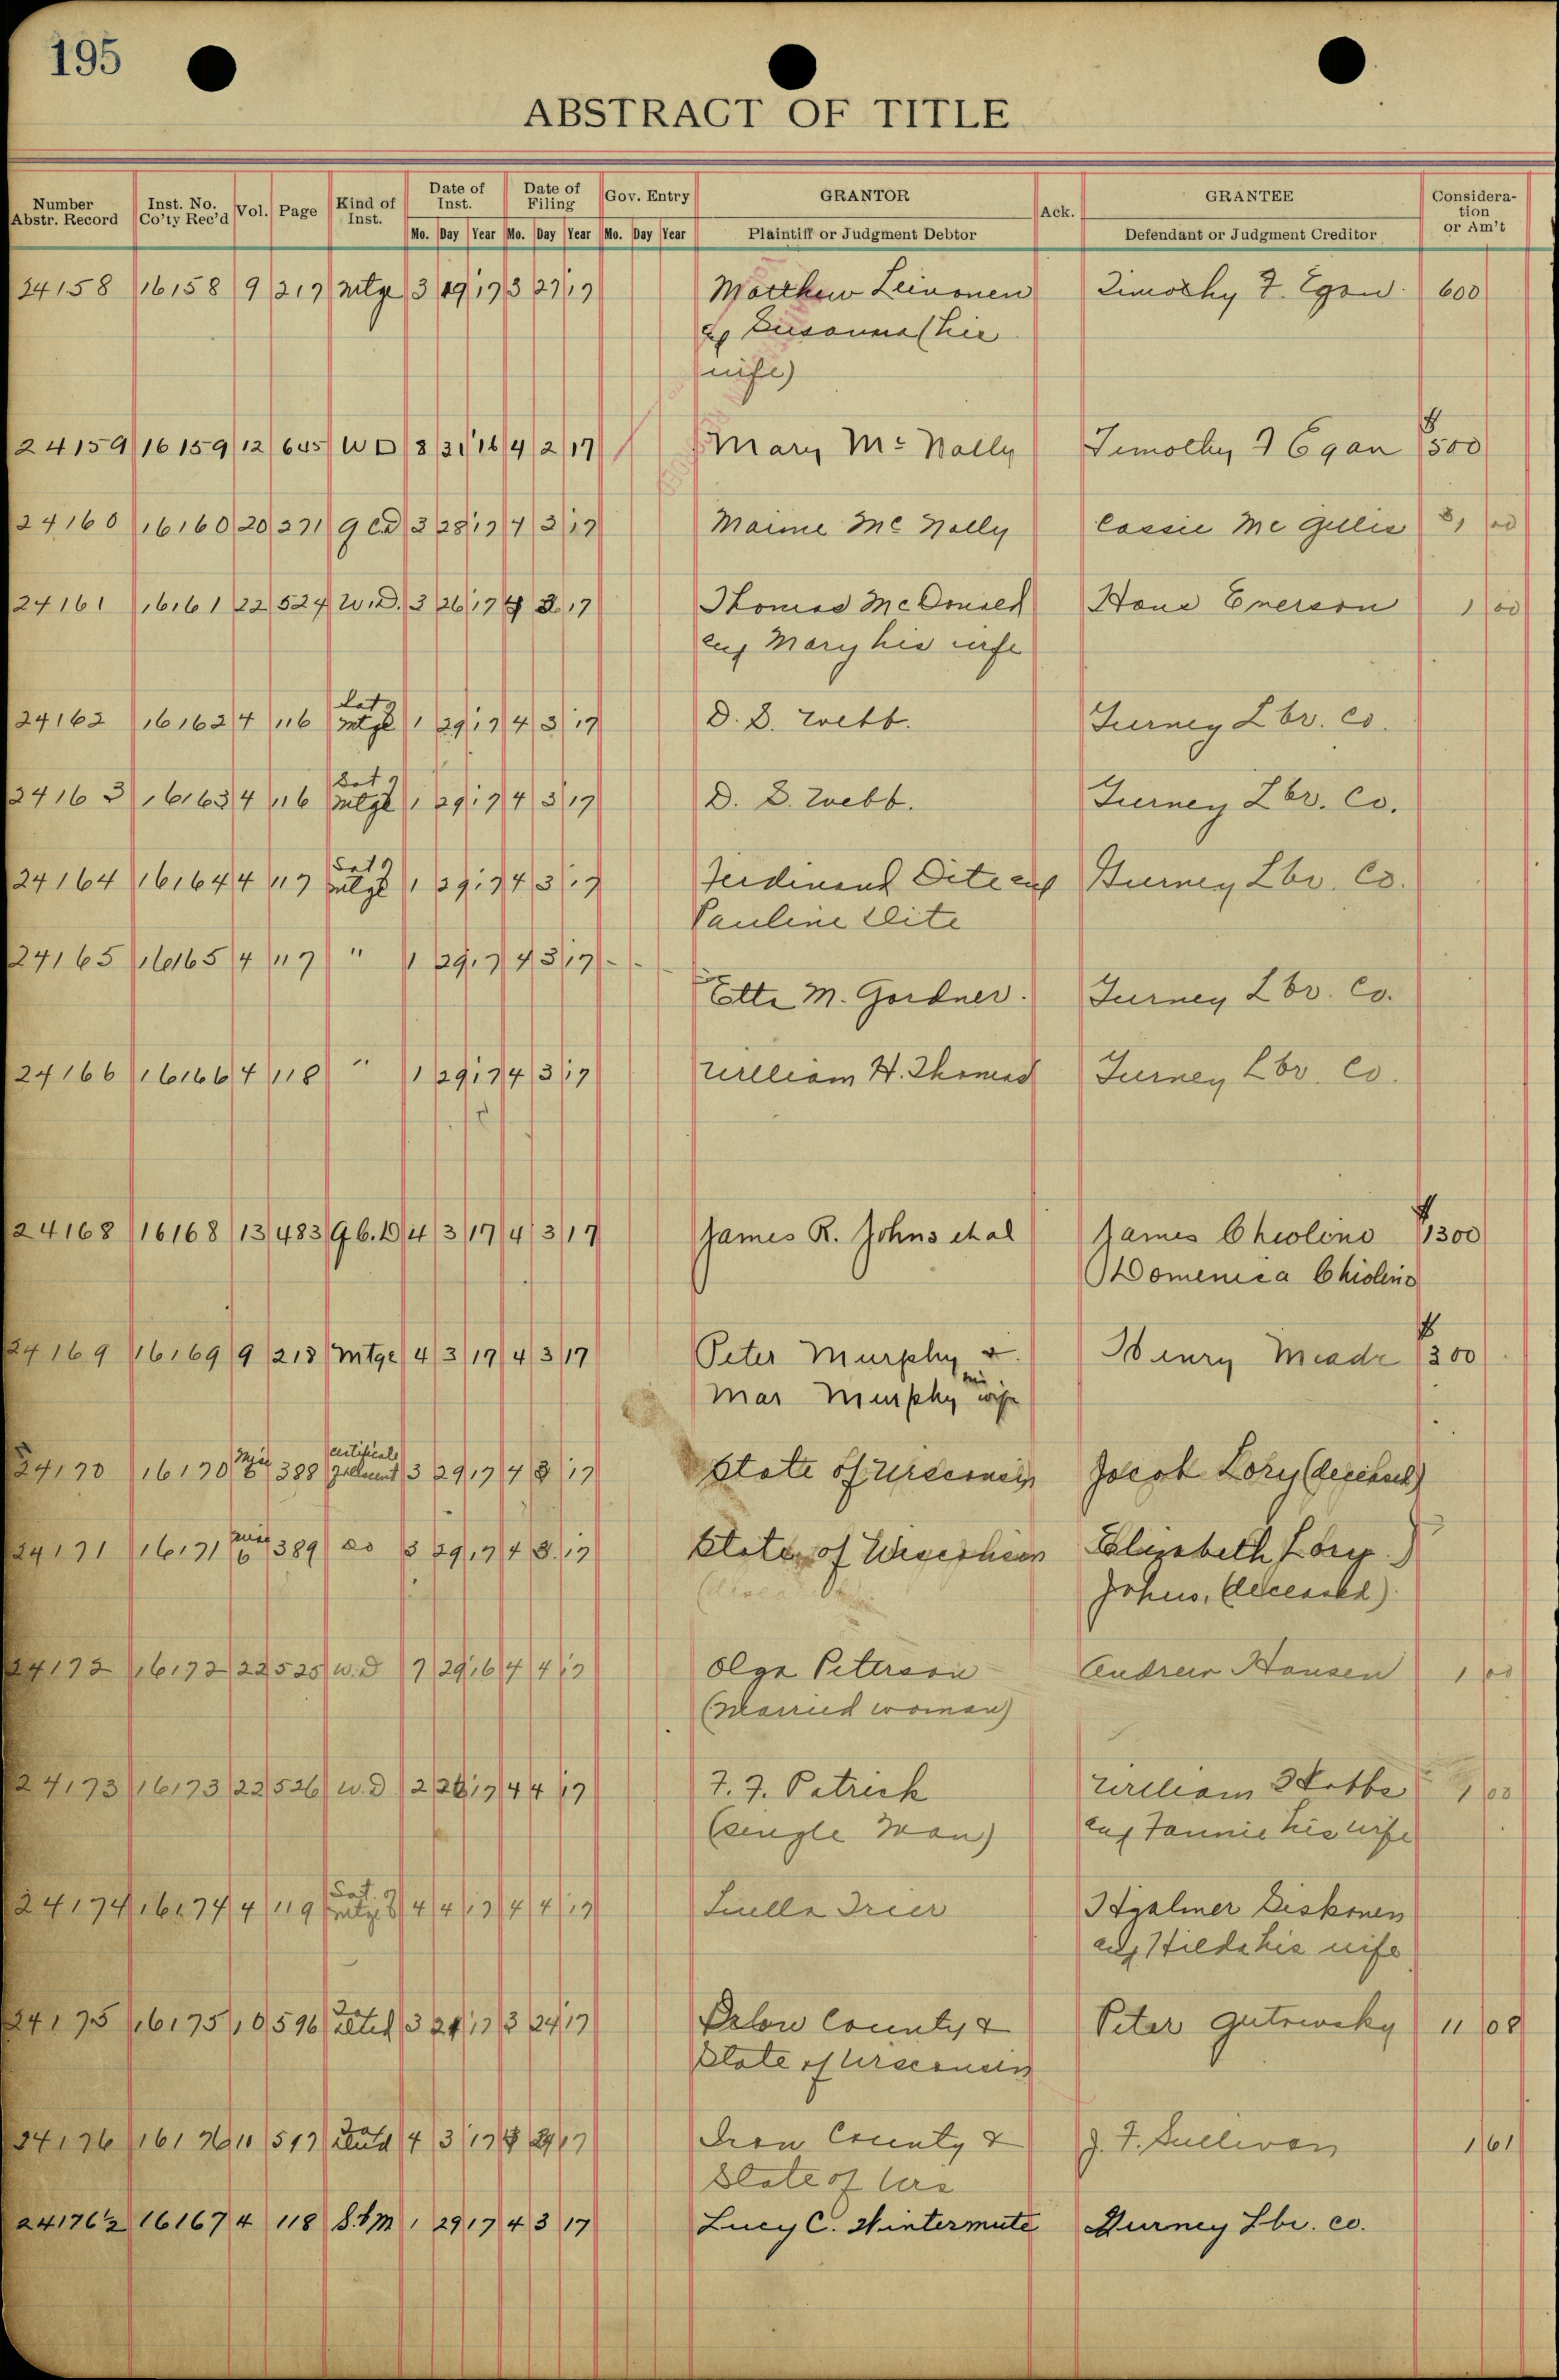 195
ABSTRACT OF TITLE
Number Abstr. Record Inst. No. Co'ty Rec'd Vol. Page Kind of Inst. Date of Inst. Date of Filing Gov. Entry GRANTOR Ack. GRANTEE Consideration or Am't
Mo. Day Year Mo. Day Year Mo. Day Year Plaintiff or Judgment Debtor Defendant or Judgment Creditor
24158 16158 9 217 Mtge 3 19 17 3 27 17 Matthew Leinonen Timothy F. Egan. 600
& Susanna (his
wife)
24159 16159 12 645 WD 8 31 16 4 2 17 Mary Mc Nally Timothy F Egan $500
24160 16160 20 271 QCD 3 28 17 4 3 17 Maime Mc Nally Cassie Mc Gillis $1 00
24161 16161 22 524 W.D. 3 26 17 4 3 17 Thomas McDonald Hans Emerson 1 00
and Mary his wife
24162 16162 4 116 Sat of Mtge 1 29 17 4 3 17 D. S. Webb. Gurney Lbr. Co.
24163 16163 4 116 Sat of Mtge 1 29 17 4 3 17 D. S. Webb. Gurney Lbr. Co.
24164 16164 4 117 Sat of Mtge 1 29 17 4 3 17 Ferdinand Dite and Gurney Lbr. Co.
Pauline Dite
24165 16165 4 117 " 1 29 17 4 3 17
Etta M. Gordner. Gurney Lbr. Co.
24166 16166 4 118 " 1 29 17 4 3 17 William H. Thomas Gurney Lbr. Co.
24168 16168 13 483 Q.C.D 4 3 17 4 3 17 James R. Johns et al James Chiolino $1300
Domenica Chiolino
24169 16169 9 218 Mtge 4 3 17 4 3 17 Peter Murphy & Henry Meade $300
Mar Murphy his wife
24170 16170 Misc 6 388 Certificate 3 29 17 4 3 17 State of Wisconsin Jacob Lory (deceased)
24171 16171 Misc 6 389 do 3 29 17 4 3 17 State of Wisconsin Elizabeth Lory
Johns, (deceased).
24172 16172 22 525 W.D 7 29 16 4 4 17 Olga Peterson Andrew Hansen 1 00
(Married woman)
24173 16173 22 526 W.D 2 26 17 4 4 17 F. F. Patrick William 1 00
(single Man) and Fannie his wife
24174 16174 4 119 Sat. of Mtge 4 4 17 4 4 17 Luella Trier Hjalmer Siskonen
and Hilda his wife
24175 16175 10 596 3 24 17 3 24 17 County & Peter Gutrowsky 11 08
State of Wisconsin
24176 16176 11 517 4 3 17 Iron County & J. F. Sullivan 1 61
State of Wis
24176½ 16167 4 118 S.&M 1 29 17 4 3 17 Lucy C. Wintermute Gurney Lbr. Co.